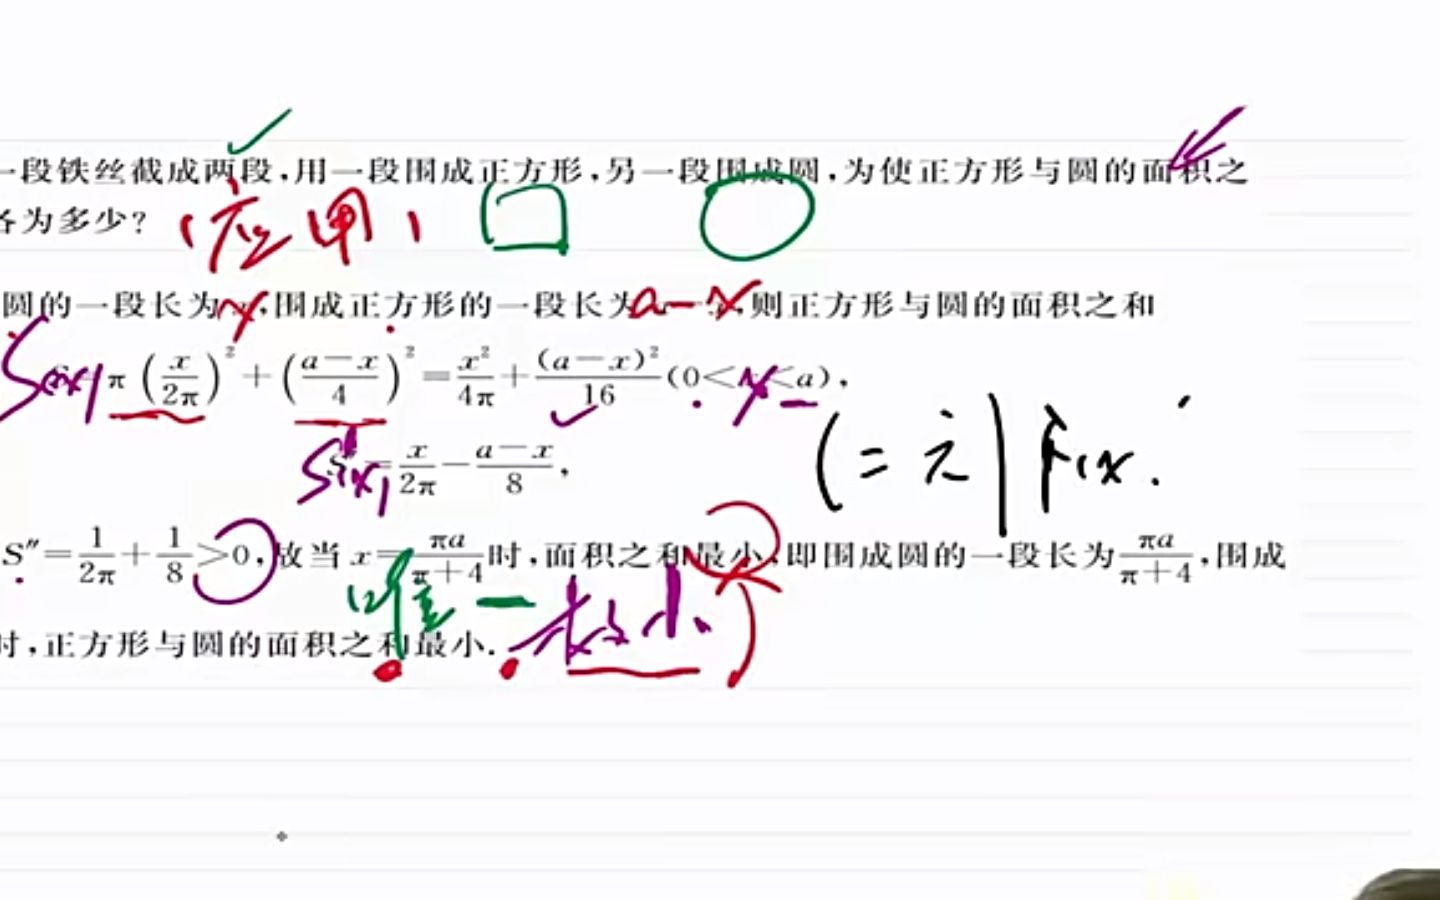 一段铁丝截成两段,用一段围成正方形,另一段围成圆,为使正方形与圆的面积之
各为多少?
(应用)
圆的一段长为x,围成正方形的一段长为a-x,则正方形与圆的面积之和
S(x)=π(x/2π)²+((a-x)/4)²=x²/4π+(a-x)²/16(0<x<a),
S'(x)=x/2π-(a-x)/8,
(二元)
S″=1/2π+1/8>0,故当x=πa/(π+4)时,面积之和最小,即围成圆的一段长为πa/(π+4),围成
唯一极小
时,正方形与圆的面积之和最小.